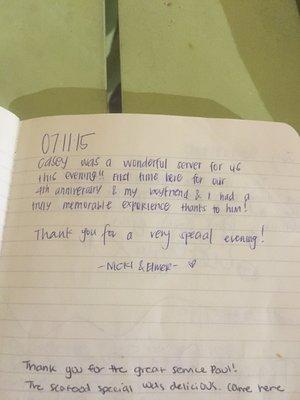 07/11/15
Casey was a wonderful server for us
this evening!! First time here for our
4th anniversary & my boyfriend & I had a
truly memorable experience thanks to him!
Thank you for a very special evening!
-NICKI & ELMER- ♡
Thank you for the great service Paul!
The seafood special was delicious. Came here